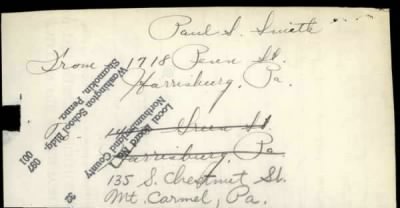 Paul S. Smith
From 1718 Penn St.
Harrisburg, Pa.
Green St.
Harrisburg, Pa
135 S. Chestnut St.
Mt. Carmel, Pa.
Local Board No. 1
Northumberland County
097
001
Washington School Bldg.
Shamokin, Penna.